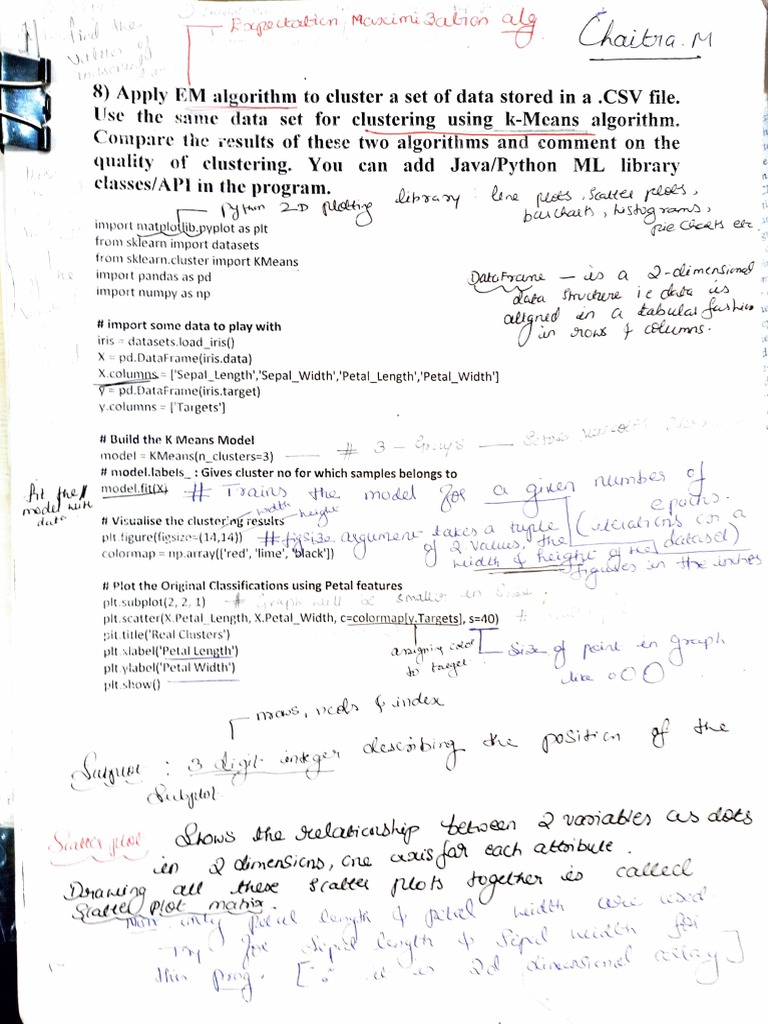 Expectation Maximization alg
Chaitra.M
find the
values of
8) Apply EM algorithm to cluster a set of data stored in a .CSV file.
Use the same data set for clustering using k-Means algorithm.
Compare the results of these two algorithms and comment on the
quality of clustering. You can add Java/Python ML library
classes/API in the program.
Python 2D plotting library : line plots, scatter plots,
barcharts, histograms,
pie charts etc.
import matplotlib.pyplot as plt
from sklearn import datasets
from sklearn.cluster import KMeans
import pandas as pd
import numpy as np
DataFrame – is a 2-dimensional
data structure ie data is
aligned in a tabular fashion
in rows & columns.
# import some data to play with
iris = datasets.load_iris()
X = pd.DataFrame(iris.data)
X.columns = ['Sepal_Length','Sepal_Width','Petal_Length','Petal_Width']
y = pd.DataFrame(iris.target)
y.columns = ['Targets']
# Build the K Means Model
model = KMeans(n_clusters=3) # 3 – Groups
# model.labels_ : Gives cluster no for which samples belongs to
fit the
model with
data
model.fit(X) # Trains the model for a given number of
epochs.
(iterations on a
dataset)
width height
# Visualise the clustering results
plt.figure(figsize=(14,14)) # figsize argument takes a tuple
of 2 values, the
width & height of the
figures in the inches
colormap = np.array(['red', 'lime', 'black'])
# Plot the Original Classifications using Petal features
plt.subplot(2, 2, 1) # Graph will be smaller in
plt.scatter(X.Petal_Length, X.Petal_Width, c=colormap[y.Targets], s=40) #
plt.title('Real Clusters')
plt.xlabel('Petal Length')
plt.ylabel('Petal Width')
plt.show()
assigning color
to target
Size of point in graph
like o O O
rows, ncols & index
Subplot : 3 digit integer describing the position of the
Subplot
Scatter plot Shows the relationship between 2 variables as dots
in 2 dimensions, one axis for each attribute.
Drawing all these scatter plots together is called
Scatter plot matrix.
only petal length & petal width are used
Try for Sepal length & Sepal width for
this prog. [∵ it is 2d dimensional array]